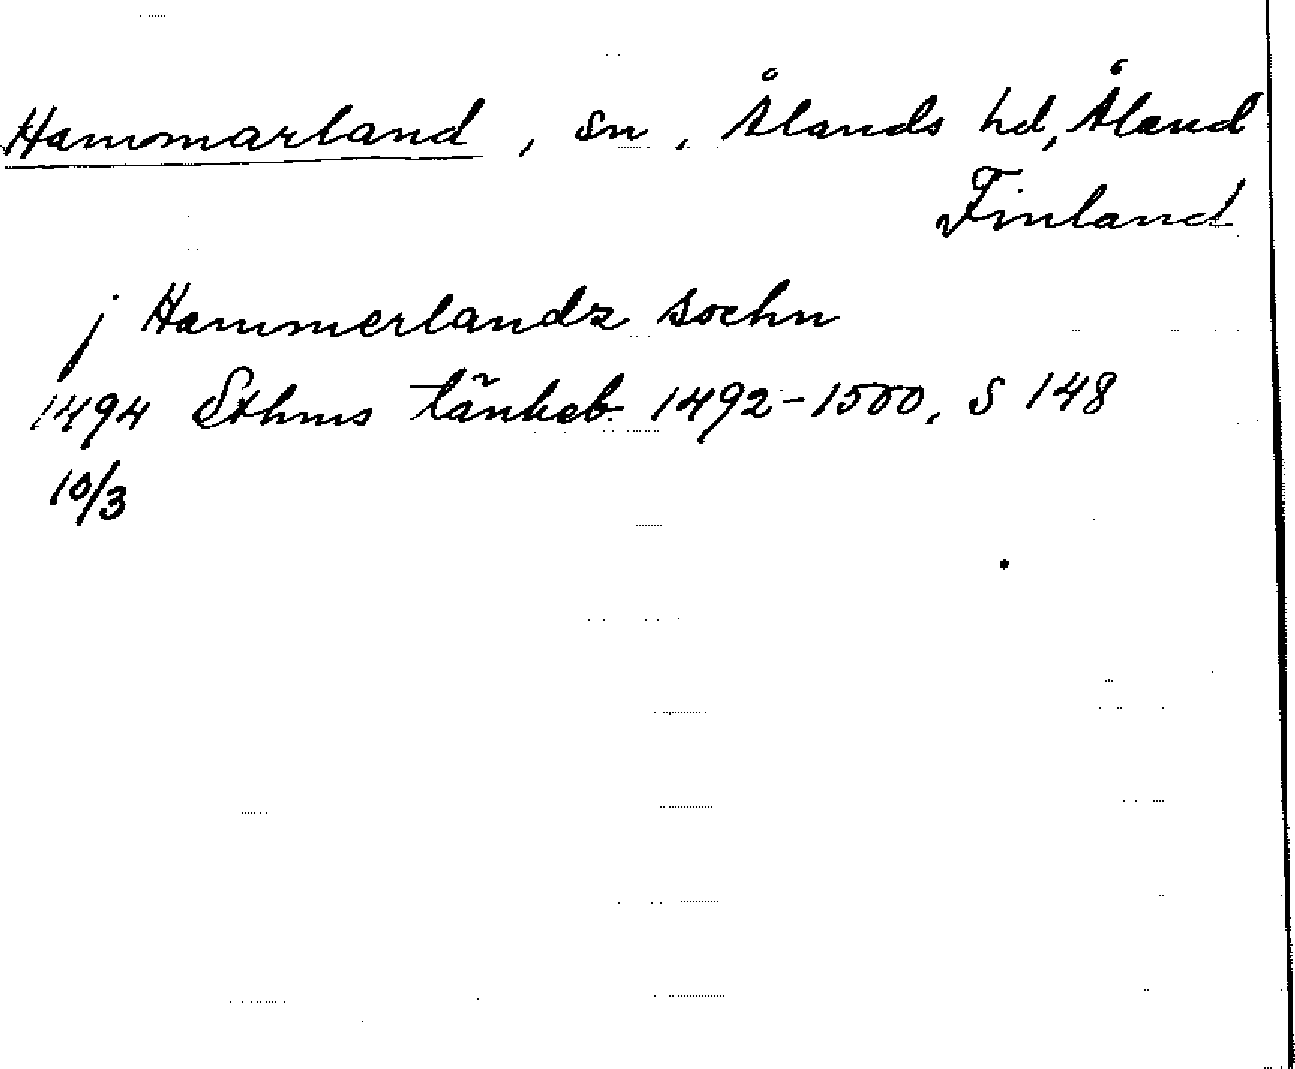 Hammarland, sn, Ålands hd, Åland
Finland
j Hammerlandz sochn
1494 Sthms tänkeb. 1492-1500, s 148
10/3